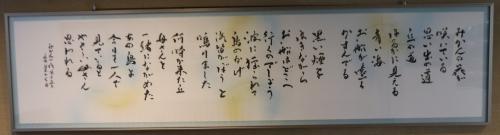 みかんの花が
咲いている
思い出の道
丘の道
はるかに見える
青い海
お船が遠く
かすんでる
黒い煙を
はきながら
お船はどこへ
行くのでしょう
波に揺られて
島のかげ
汽笛がぼうと
鳴りました
何時か来た丘
母さんと
一緒にながめた
あの島よ
今日も一人で
見ていると
やさしい母さん
思われる